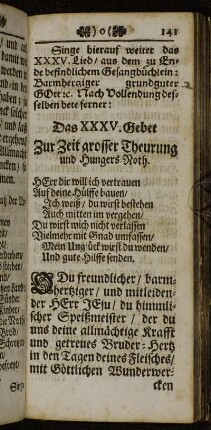 )o( 141
Singe hierauf weiter das
XXXV. Lied/ aus dem zu En-
de befindlichem Gesangbüchlein:
Barmhertziger grundguter
GOtt ꝛc. Nach Vollendung des-
selben bete ferner:
Das XXXV. Gebet
Zur Zeit grosser Theurung
und Hungers Noth.
HErr dir will ich vertrauen
Auf deine Hülffe bauen/
Ich weiß/ du wirst bestehen
Auch mitten im vergehen/
Du wirst mich nicht verlassen
Vielmehr mit Gnad umfassen/
Mein Ungück wirst du wenden/
Und gute Hilffe senden.
O Du freundlicher/ barm-
hertziger/ und mitleiden-
der HErr JEsu/ du himmli-
scher Speißmeister/ der du
uns deine allmächtige Krafft
und getreues Bruder-Hertz
in den Tagen deines Fleisches/
mit Göttlichen Wunderwer-
cken